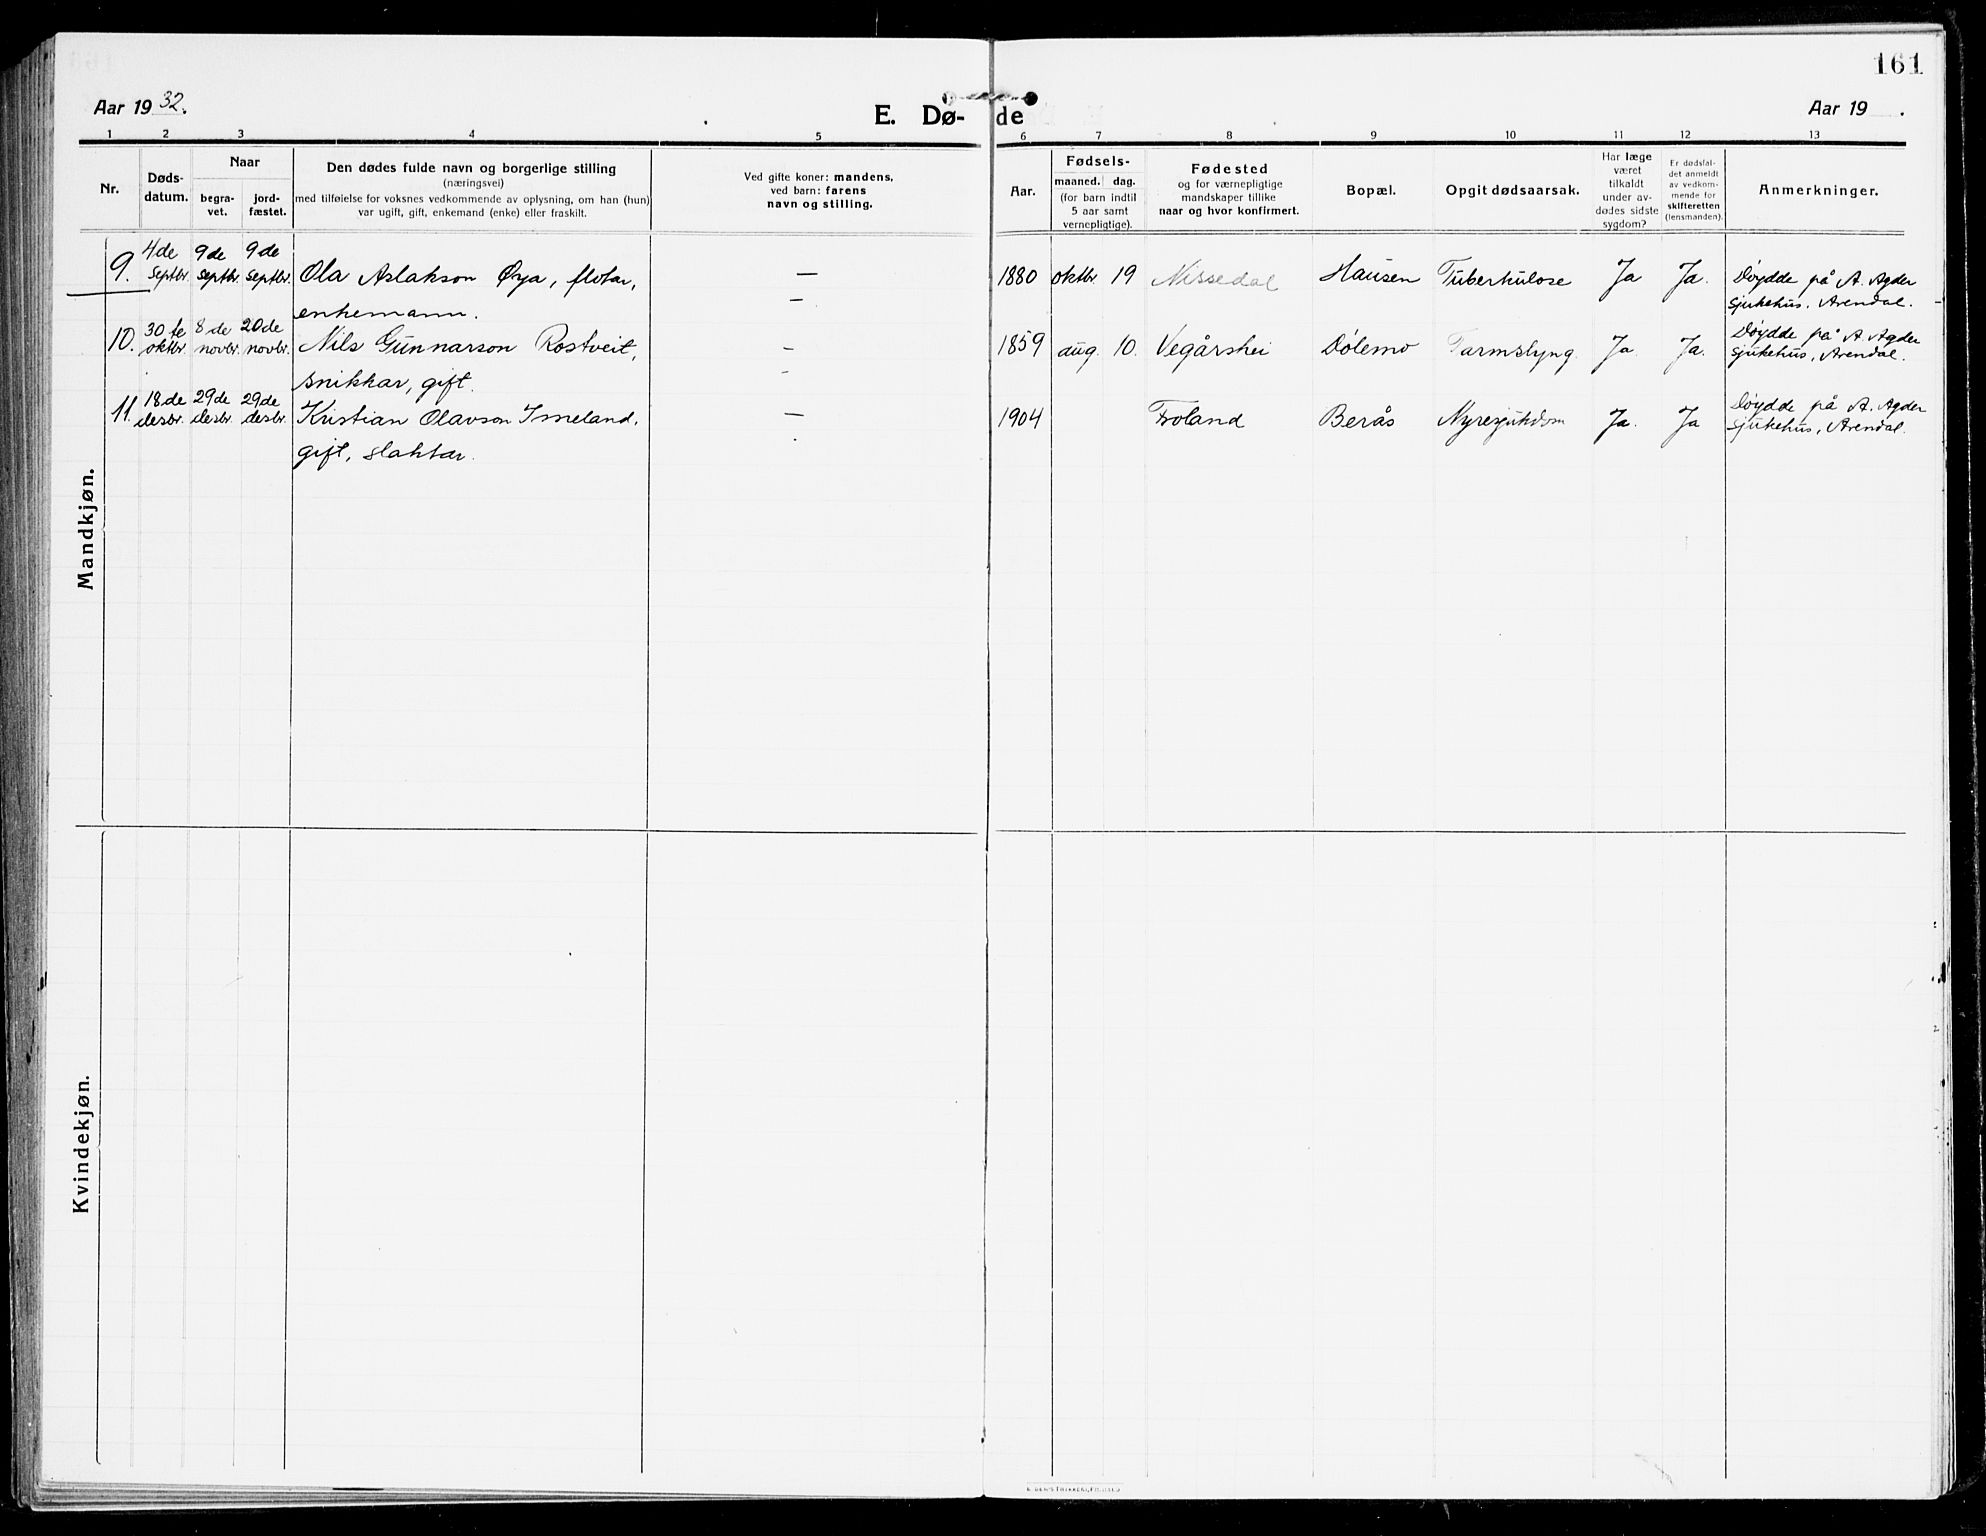 161
Aar 1932.
E. Dø-de
Aar 19 .
1 2 3 4 5 6 7 8 9 10 11 12 13
Nr.
Døds-
datum.
Naar
begra-
vet.
jord-
fæstet.
Den dødes fulde navn og borgerlige stilling
(næringsvei)
med tilføielse for voksnes vedkommende av oplysning, om han (hun)
var ugift, gift, enkemand (enke) eller fraskilt.
Ved gifte koner: mandens,
ved barn: farens
navn og stilling.
Aar.
Fødsels-
maaned. dag.
(for barn indtil
5 aar samt
vernepligtige).
Fødested
og for værnepligtige
mandskaper tillike
naar og hvor konfirmert.
Bopæl.
Opgit dødsaarsak.
Har læge
været
tilkaldt
under av-
dødes sidste
sygdom?
Er dødsfal-
det anmeldt
av vedkom-
mende for
skifteretten
(lensmanden).
Anmerkninger.
Mandkjøn.
9. 4de septbr. 9de septbr. 9de septbr. Ola Aslakson Øya, flotar, — 1880 oktbr 19 Nissedal Hausen Tuberkulose Ja Ja. Døydde på A. Agder
enkemann. — sjukehus, Arendal.
10. 30te oktbr. 8de novbr. 20de novbr. Nils Gunnarson Rostveit, — 1859 aug. 10. Vegårshei Dölemo Tarmslyng. Ja. Ja. Døydde på A. Agder
snikkar, gift. — sjukehus, Arendal.
11. 18de desbr. 29de desbr. 29de desbr. Kristian Olavson Imeland, — 1904 Froland Berås Nyresjukdom Ja. Ja Døydde på A. Agder
gift, slaktar. sjukehus, Arendal.
Kvindekjøn.